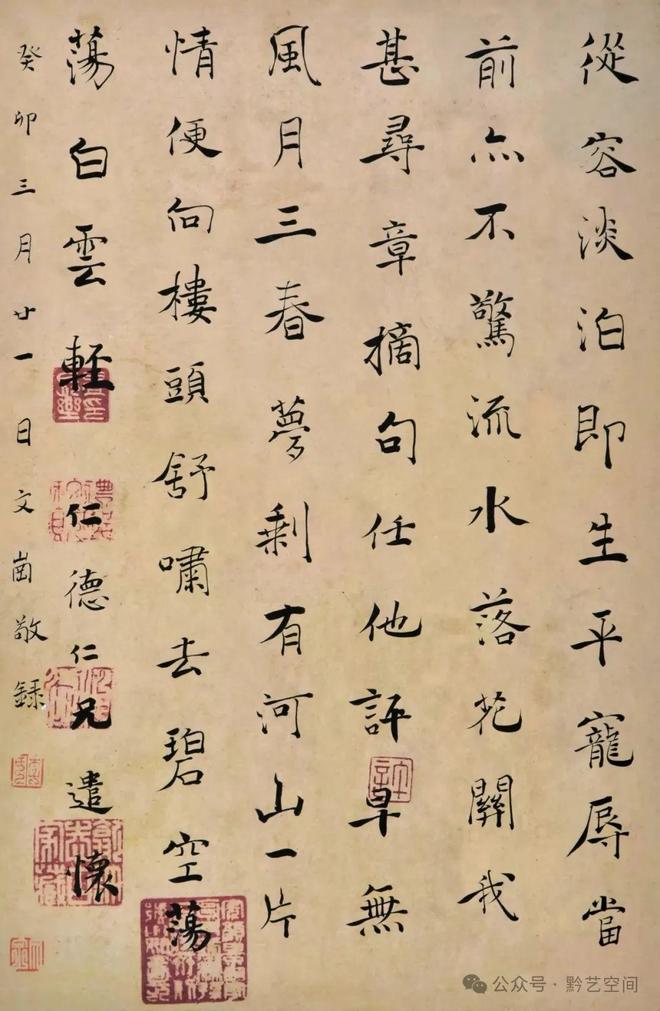 從容淡泊即生平寵辱當
前亦不驚流水落花關我
甚尋章摘句任他評早無
風月三春夢剩有河山一片
情便向樓頭舒嘯去碧空蕩
蕩白雲輕 仁德仁兄遣懷
癸卯三月廿一日文崗敬録
公众号·黔艺空间